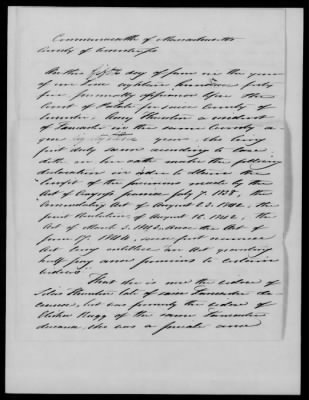 Commonwealth of Massachusetts
County of Worcester ss
On this fifth day of June in the year
of our Lord eighteen hundred forty
five personally appeared before the
Court of Probate for said County of
Worcester, Amy Thurston a resident
of Lancaster in the same County
years who being
first duly sworn according to law
doth on her oath make the following
declaration in order to obtain the
benefit of the provision made by the
Act of Congress passed July 7, 1838, the
Act of August 23, 1842, the
joint Resolution of August 16, 1842, the
Act of March 3, 1843 and the Act of
June 17, 1844,
Act being entitled an Act granting
half pay and pensions to certain
widows
That she is now the widow of
Silas Thurston late of said Lancaster de-
ceased, but was formerly the widow of
Elisha Rugg of the same Lancaster
deceased who was a private and